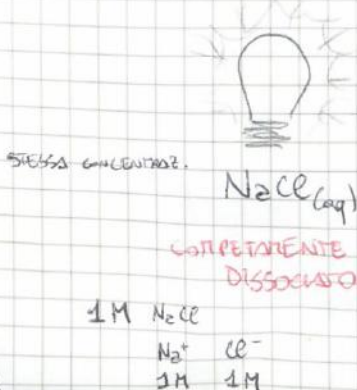 STESSA CONCENTRAZ.
NaCl(aq)
COMPETAMENTE
DISSOCIATO
1M NaCl
Na⁺ Cl⁻
1M 1M